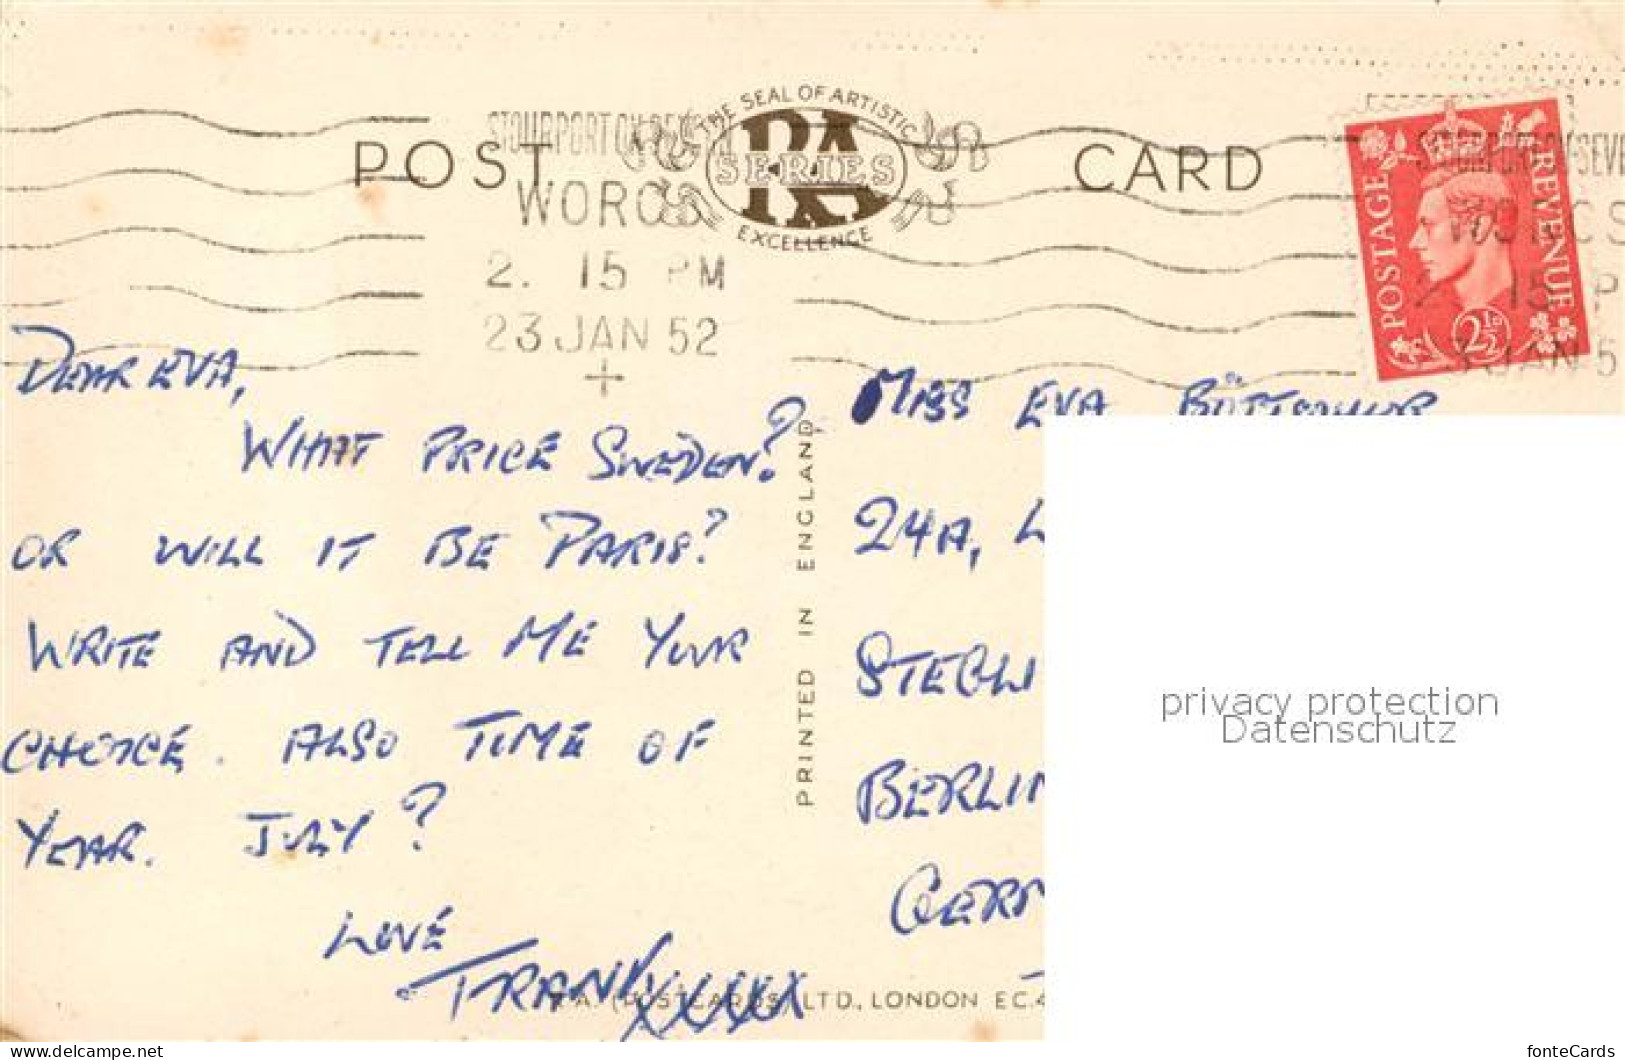 POST CARD
THE SEAL OF ARTISTIC
RA
SERIES
EXCELLENCE
STOURPORT ON SEVERN
WORCS
2. 15 PM
23 JAN 52
POSTAGE REVENUE
2½D
WORCS
15 P
JAN 5
DEAR EVA,
WHAT PRICE SWEDEN?
OR WILL IT BE PARIS?
WRITE AND TELL ME YOUR
CHOICE. ALSO TIME OF
YEAR. JULY?
LOVE
FRANK.
XXXXX
PRINTED IN ENGLAND
MISS EVA
24A, L
STEGLI
BERLIN
GERM
R.A. (POSTCARDS) LTD., LONDON E.C.4
privacy protection
Datenschutz
delcampe.net/en_GB/collectibles
fonteCards